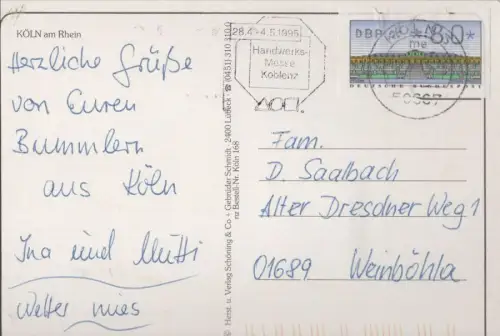 KÖLN am Rhein
Herzliche Grüße
von Euren
Bummlern
aus Köln
Ina und Mutti
Wetter mies
© Herst. u. Verlag Schöning & Co + Gebrüder Schmidt · 2400 Lübeck · ☎ (0451) 310 310
nz Bestell-Nr. Köln 168
28.4.-4.5.1995
Handwerks-
Messe
Koblenz
DBP *80*
DEUTSCHE BUNDESPOST
Fam.
D. Saalbach
Alter Dresdner Weg 1
01689 Weinböhla